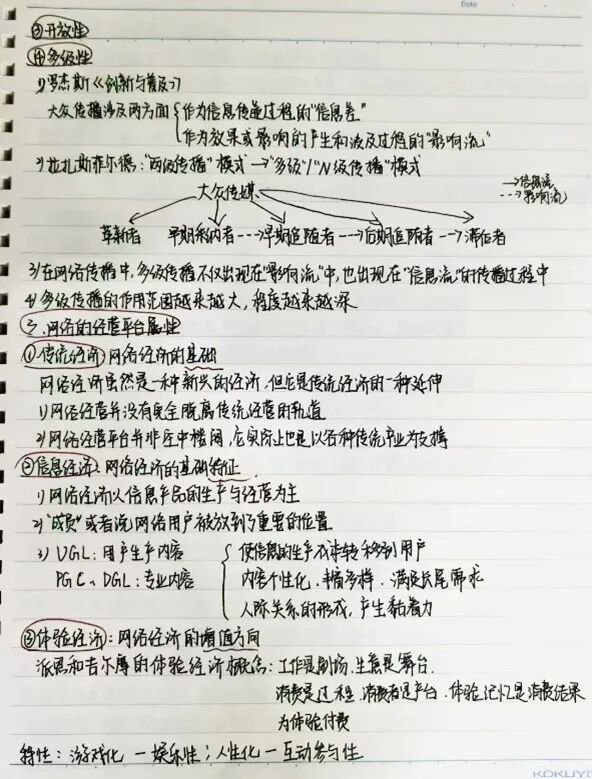 ③开放性
④多级性
1)罗杰斯《创新与普及》
大众传播涉及两方面 作为信息传递过程的"信息差"
作为效果或影响的产生和波及过程的"影响流"
2)拉扎斯菲尔德:"两级传播"模式→"多级"/"N级传播"模式
大众传媒
→信息流
⇢影响流
革新者 早期采纳者⇢早期追随者⇢后期追随者⇢滞后者
3)在网络传播中,多级传播不仅出现在"影响流"中,也出现在"信息流"的传播过程中
4)多级传播的作用范围越来越大,程度越来越深
三、网络的经营平台属性
①传统经济:网络经济的基础
网络经济虽然是一种新兴的经济,但它是传统经济的一种延伸
1)网络经营并没有完全脱离传统经营的轨道
2)网络经营平台并非空中楼阁,它实际上也是以各种传统产业为支撑
②信息经济:网络经济的基础特征
1)网络经济以信息产品的生产与经营为主
2)"成员"或者说网络用户被放到了重要的位置
3)UGL:用户生产内容 使信息的生产成本转移到用户
PGC、DGL:专业内容 内容个性化、丰富多样、满足长尾需求
人际关系的形成,产生黏着力
③体验经济:网络经济的增值方向
派恩和吉尔摩的体验经济概念:工作是剧场、生意是舞台.
消费是过程、消费者是产品、体验记忆是消费结果
为体验付费
特性:游戏化—娱乐性;人性化—互动参与性
KOKUYO